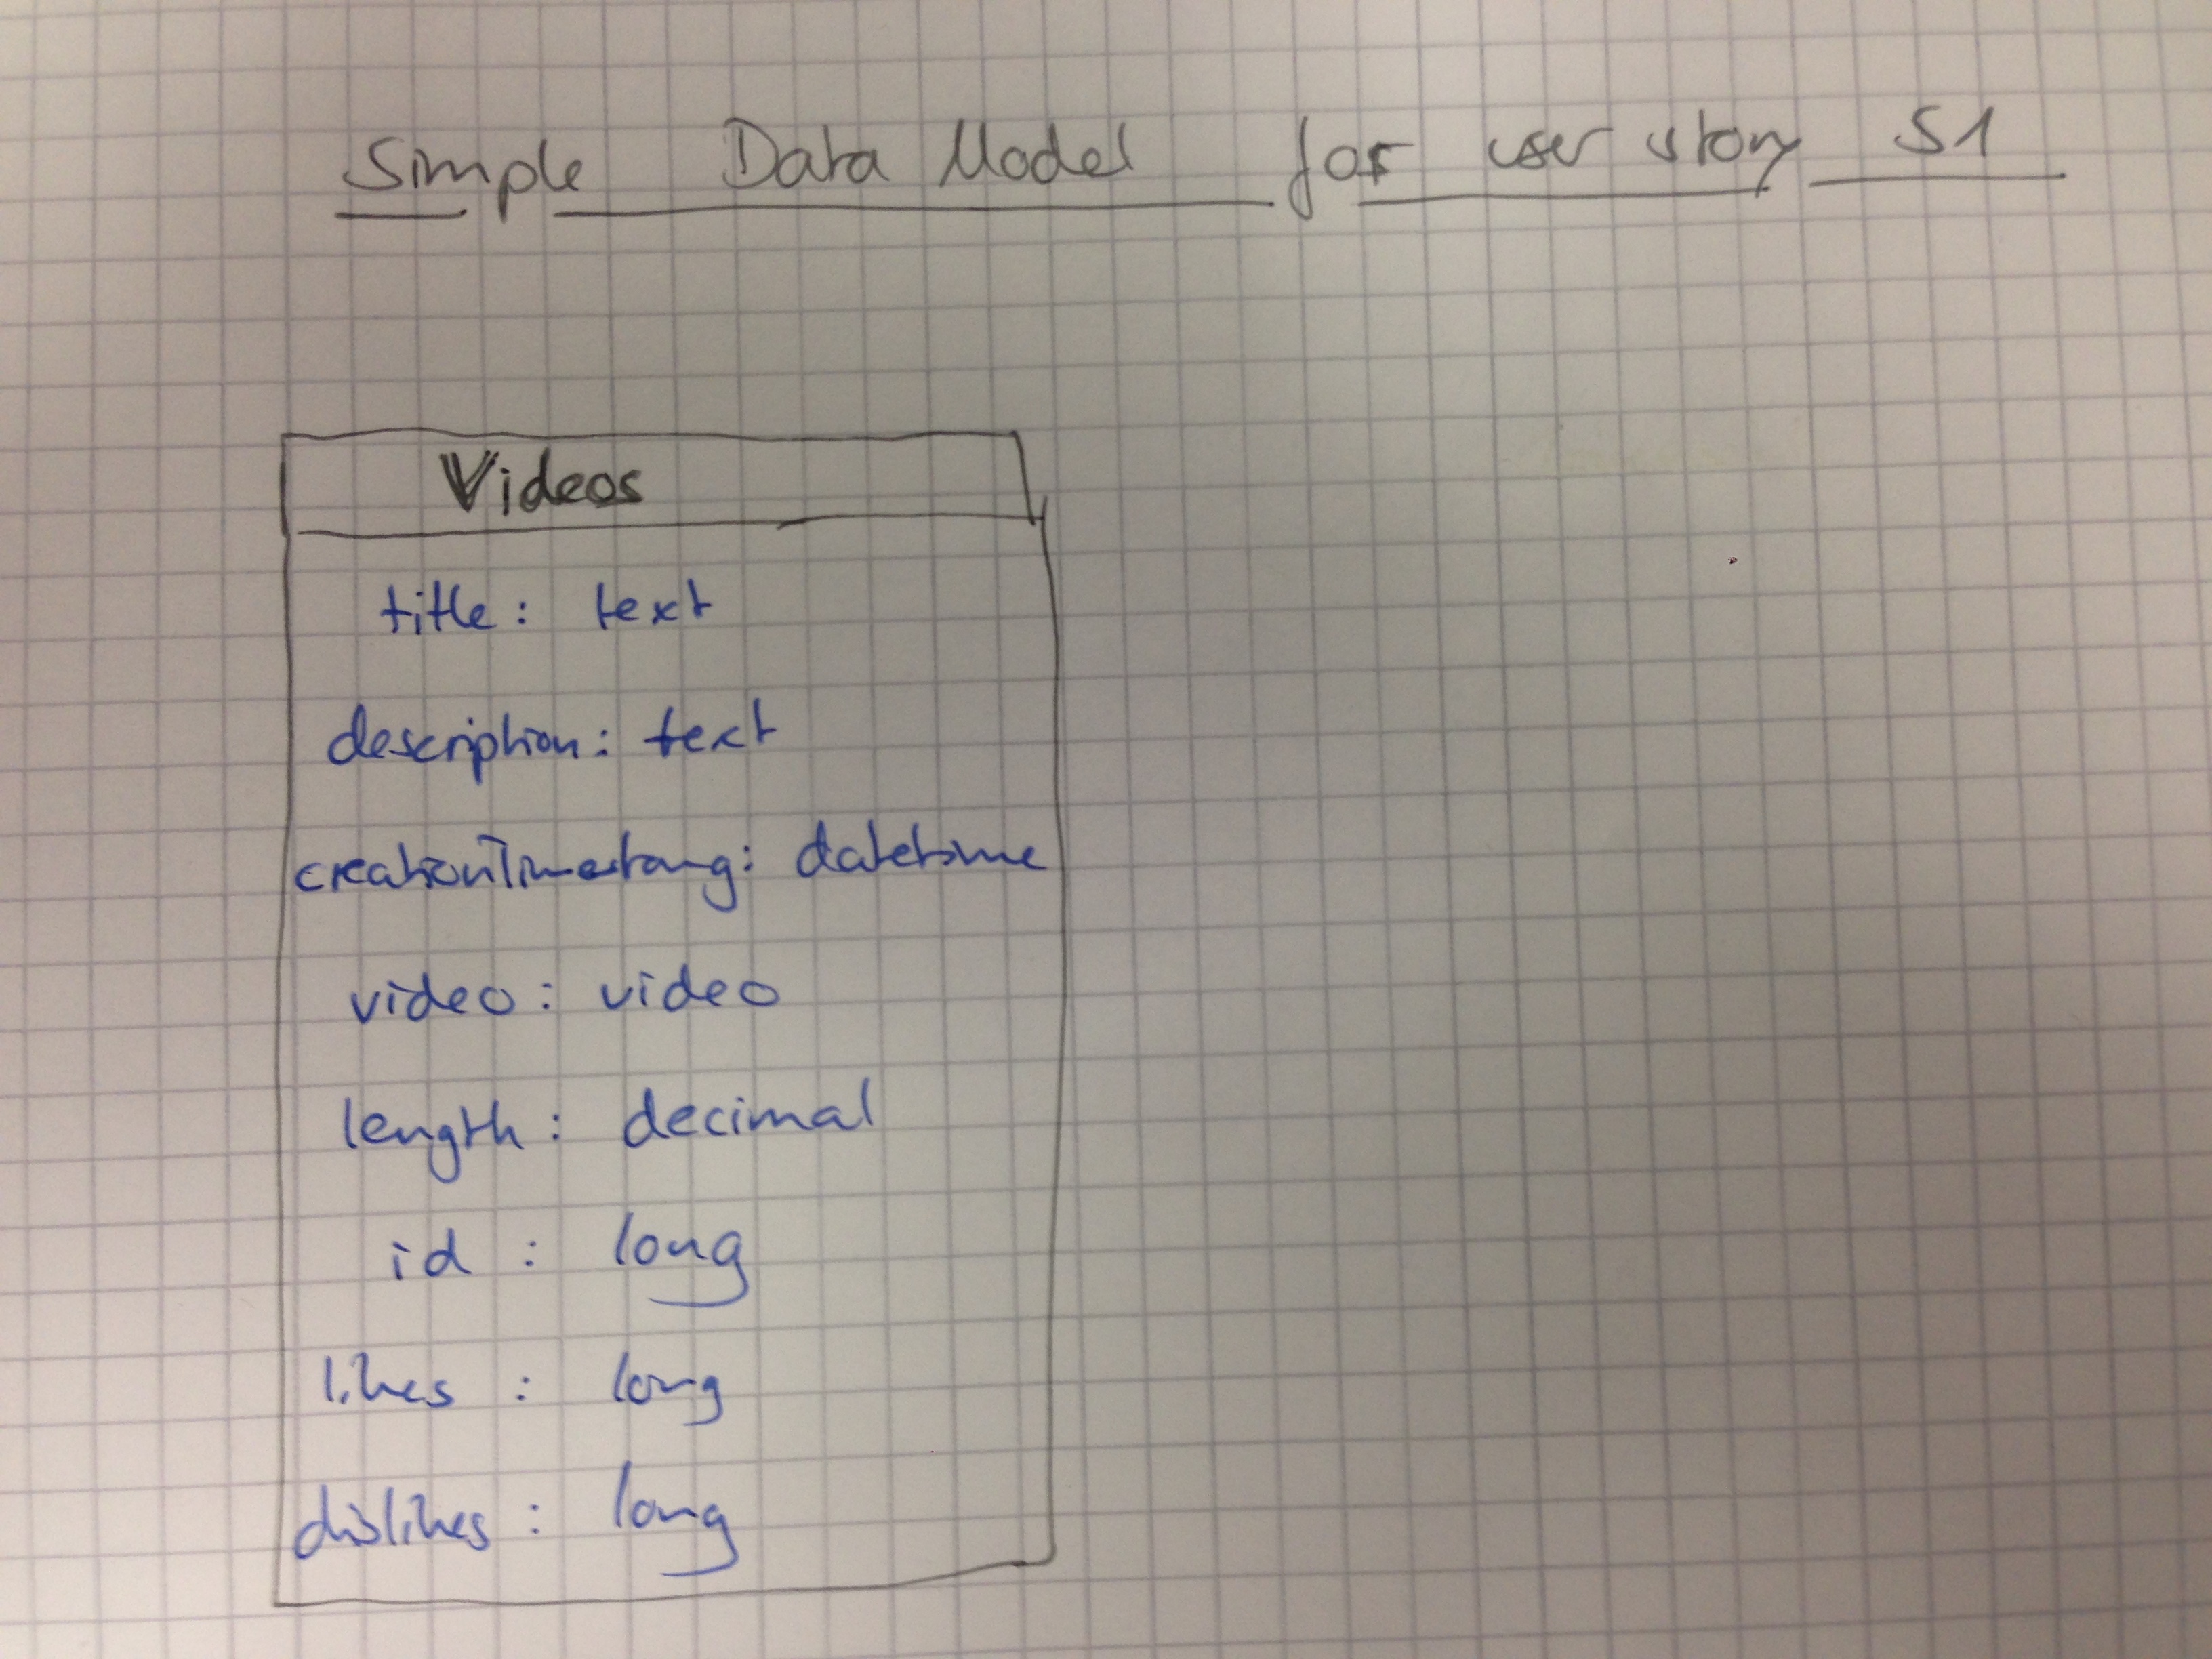 Simple Data Model for user story S1
Videos
title: text
description: text
creationTimestamp: datetime
video: video
length: decimal
id : long
likes : long
dislikes : long